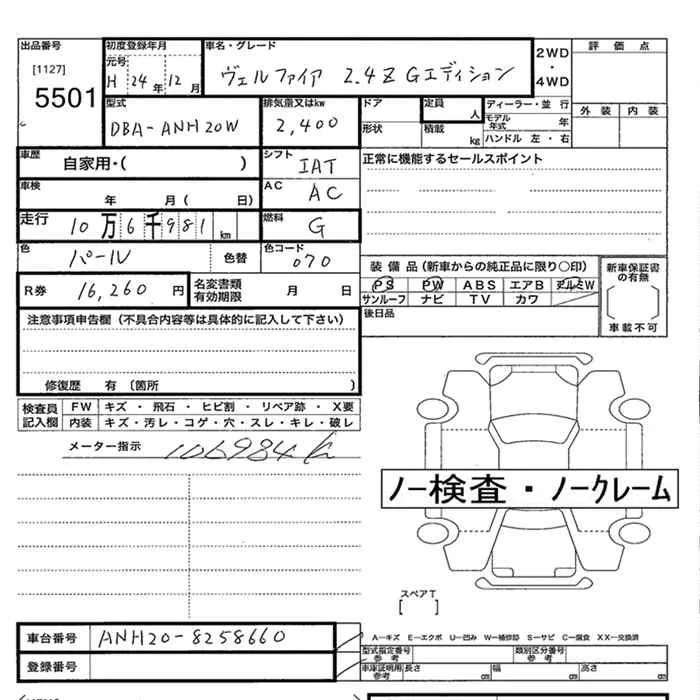 出品番号
[1127]
5501
初度登録年月
元号
H 24年 12月
車名・グレード
ヴェルファイア 2.4Z Gエディション
2WD
・
4WD
評価点
外装 内装
型式
DBA-ANH20W
排気量又はkw
2,400
ドア
定員
人
形状
積載
kg
ディーラー・並行
モデル年式 年
ハンドル 左・右
車歴
自家用・( )
シフト
IAT
正常に機能するセールスポイント
車検
年 月( 日)
AC
AC
走行
10万6千981km
燃料
G
色
パール
色替
色コード
070
装備品(新車からの純正品に限り○印)
PS PW ABS エアB アルミW
サンルーフ ナビ TV カワ
新車保証書の有無
車載不可
R券
16,260円
名変書類有効期限
月 日
後日品
注意事項申告欄(不具合内容等は具体的に記入して下さい)
修復歴 有〔箇所 〕
検査員記入欄
FW キズ・飛石・ヒビ割・リペア跡・X要
内装 キズ・汚レ・コゲ・穴・スレ・キレ・破レ
メーター指示
106984
ノー検査・ノークレーム
スペアT
[ ]
車台番号
ANH20-8258660
登録番号
A―キズ E―エクボ U―凹み W―補修跡 S―サビ C―腐食 XX―交換済
型式指定番号
参考
類別区分番号
参考
車庫証明用
参考
長さ cm 幅 cm 高さ cm